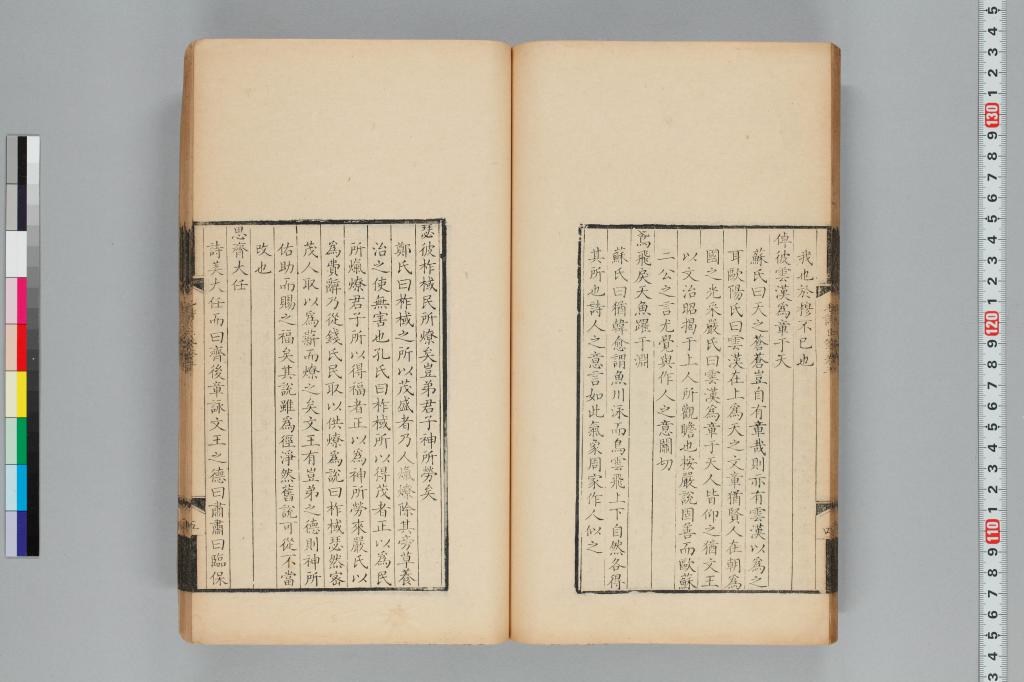 我也於摎不已也
倬彼雲漢為章于天
蘇氏曰天之蒼蒼豈自有章哉則亦有雲漢以為之
耳歐陽氏曰雲漢在上為天之文章猶賢人在朝為
國之光采嚴氏曰雲漢為章于天人皆仰之猶文王
以文治昭揭于上人所觀瞻也按嚴說固善而歐蘇
二公之言尤覺與作人之意關切
鳶飛戾天魚躍于淵
蘇氏曰猶韓愈謂魚川泳而鳥雲飛上下自然各得
其所也詩人之意言如此氣象周家作人似之
瑟彼柞棫民所燎矣豈弟君子神所勞矣
鄭氏曰柞棫之所以茂盛者乃人熂燎除其旁草養
治之使無害也孔氏曰柞棫所以得茂者正以為民
所熂燎君子所以得福者正以為神所勞來嚴氏以
為費辭乃從錢氏民取以供燎為說曰柞棫瑟然密
茂人取以為薪而燎之矣文王有豈弟之德則神所
佑助而賜之福矣其說雖為徑淨然舊說可從不當
改也
思齊大任
詩美大任而曰齊後章詠文王之德曰肅肅曰臨保
五
四
130
120
110